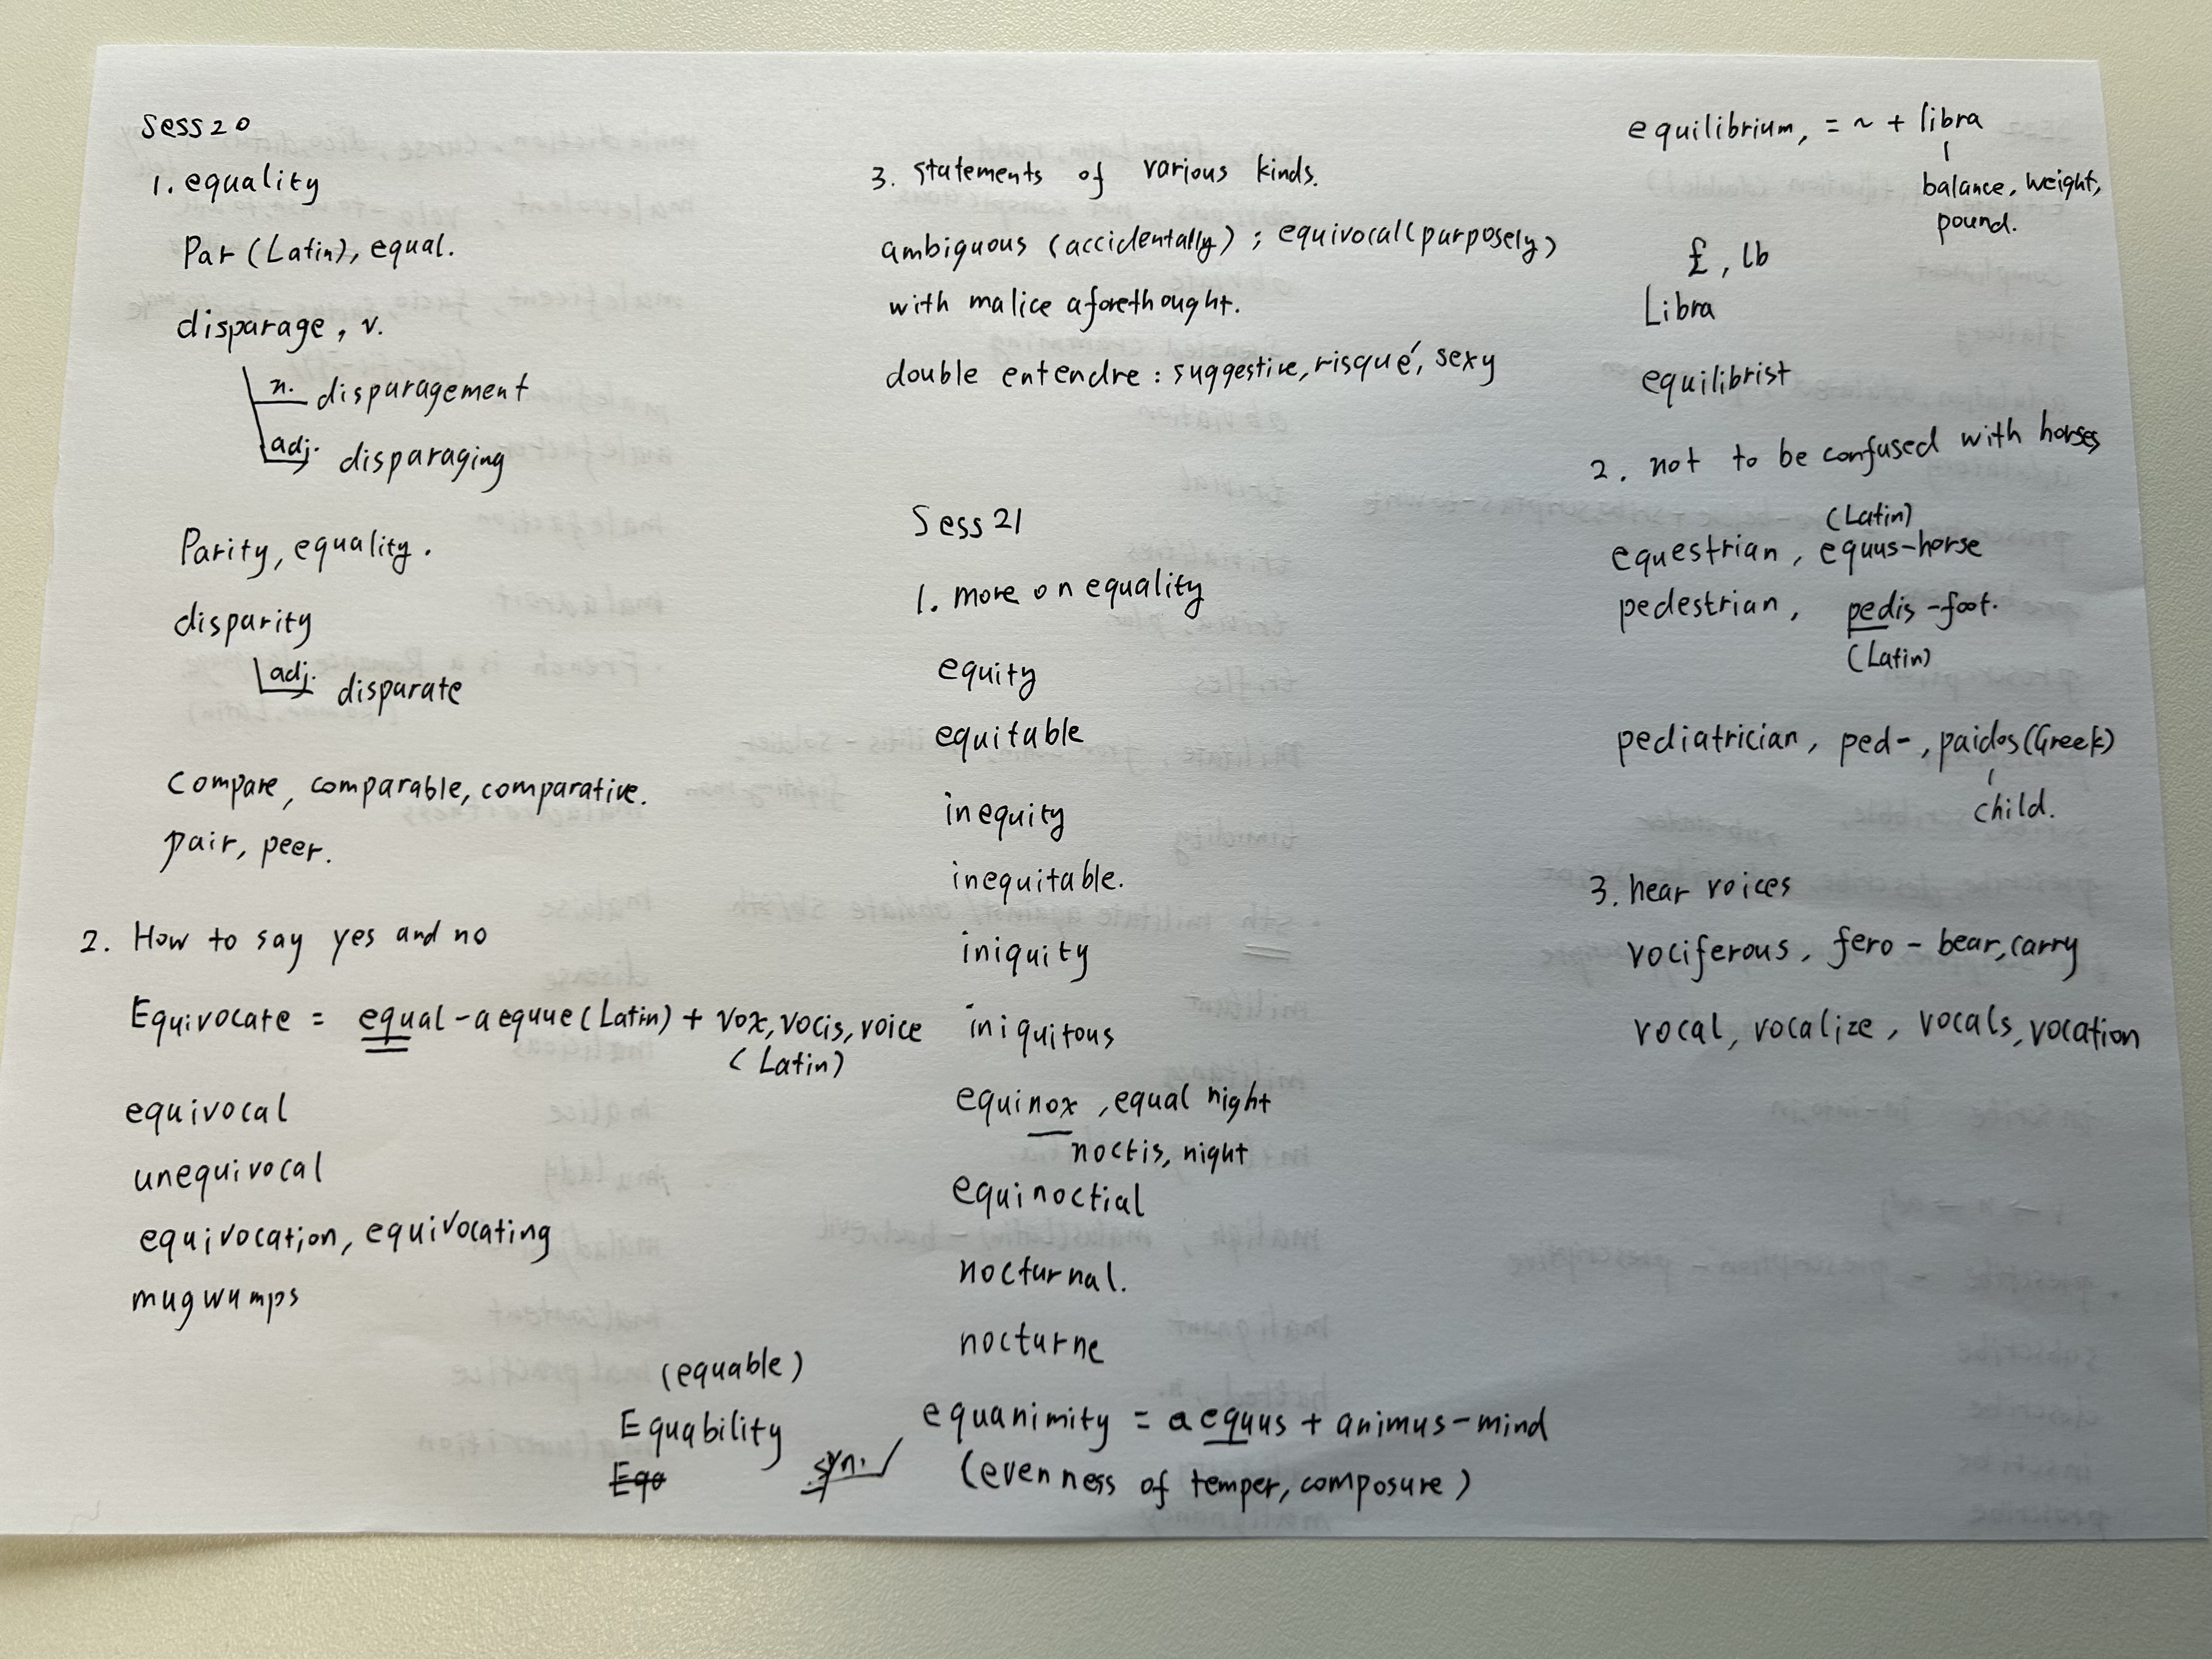 Sess 20
1. equality
Par (Latin), equal.
disparage, v.
n. disparagement
adj. disparaging
Parity, equality.
disparity
adj. disparate
Compare, comparable, comparative.
pair, peer.
2. How to say yes and no
Equivocate = equal - aequue (Latin) + vox, vocis, voice
(Latin)
equivocal
unequivocal
equivocation, equivocating
mugwumps
3. Statements of various kinds.
ambiguous (accidentally) ; equivocal (purposely)
with malice aforethought.
double entendre : suggestive, risqué, sexy
Sess 21
1. more on equality
equity
equitable
inequity
inequitable.
iniquity
iniquitous
equinox, equal night
noctis, night
equinoctial
nocturnal.
nocturne
(equable)
Equability
Equ
syn.
equanimity = aequus + animus - mind
(evenness of temper, composure)
equilibrium, = ~ + libra
balance, weight,
pound.
£, lb
Libra
equilibrist
2. not to be confused with horses
(Latin)
equestrian, equus - horse
pedestrian, pedis - foot.
(Latin)
pediatrician, ped-, paidos (Greek)
child.
3. hear voices
vociferous, fero - bear, carry
vocal, vocalize, vocals, vocation